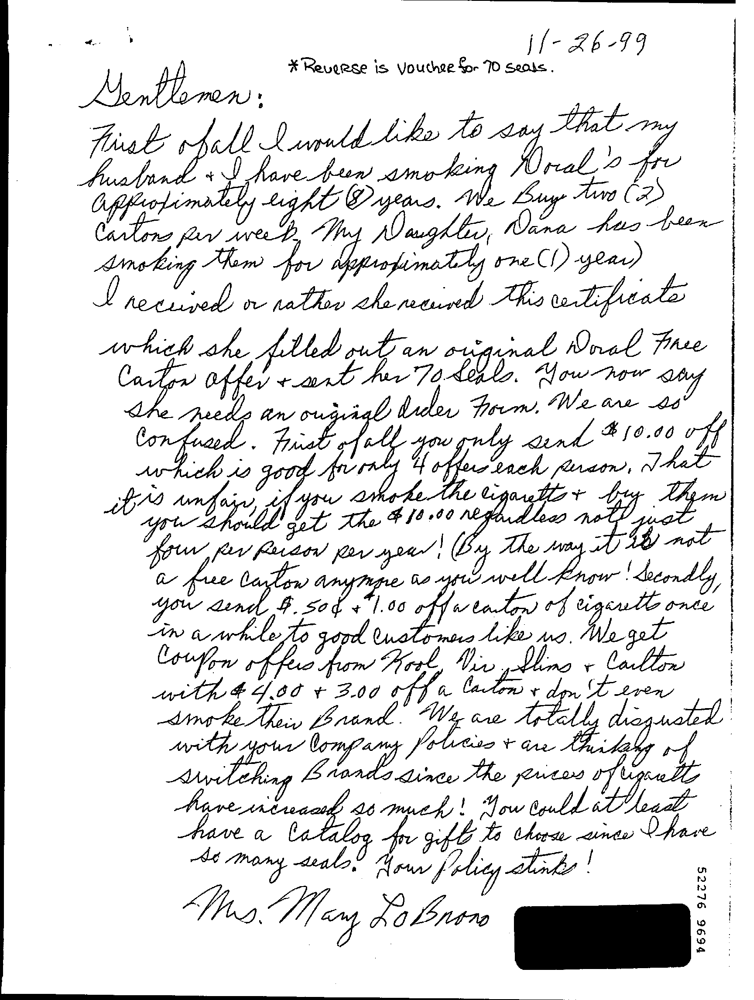 11-26-99
*Reverse is voucher for 70 seals.
Gentlemen:
First of all I would like to say that my
husband + I have been smoking Doral's for
approximately eight (8) years. We Buy two (2)
Cartons per week. My Daughter, Dana has been
smoking them for approximately one (1) year)
I received or rather she received this certificate
which she filled out an original Doral Free
Carton Offer + sent her 70 Seals. You now say
she needs an original Order Form. We are so
confused. First of all you only send $10.00 off
which is good for only 4 offers each person. That
it is unfair, if you smoke the cigaretts + buy them
you should get the $10.00 regardless not just
four per person per year! (By the way it is not
a free carton anymore as you well know! Secondly,
you send $.50¢ + $1.00 off a carton of cigaretts once
in a while to good customers like us. We get
Coupon offers from Kool, Vir. Slims + Carlton
with $4.00 + 3.00 off a Carton + don't even
smoke their Brand. We are totally disgusted
with your Company Policies + are thinking of
switching Brands since the prices of cigaretts
have increased so much! You could at least
have a Catalog for gifts to choose since I have
so many seals. Your Policy stinks!
Mrs. Mary LoBnono
52276 9694